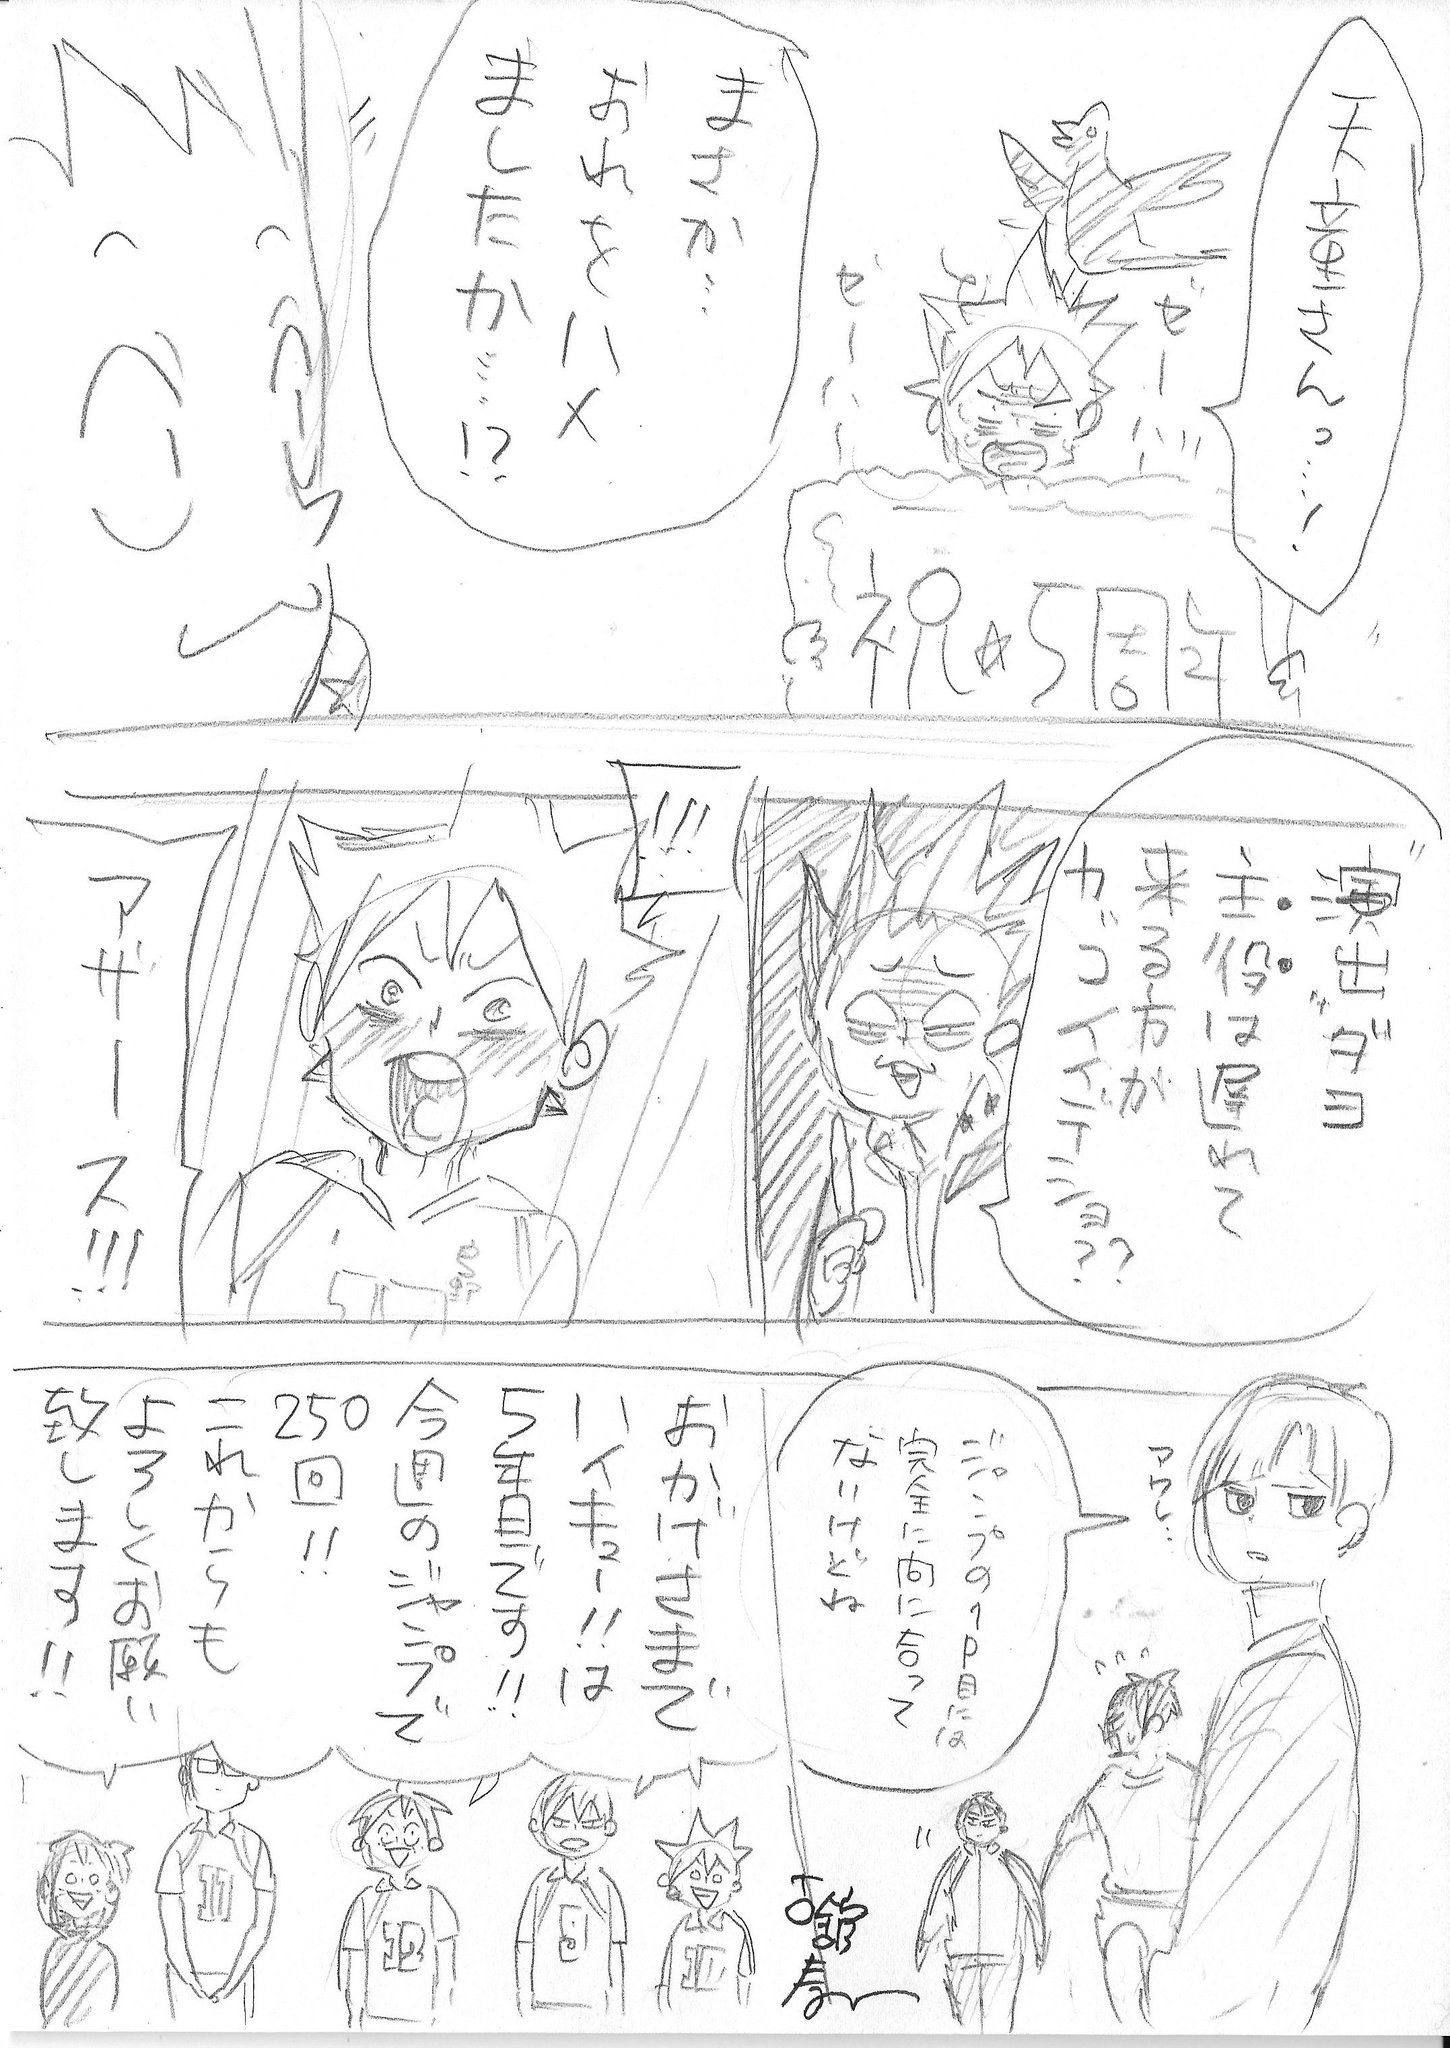 天童さんっ…!
ゼーハー
ゼーハー
祝☆5周年
まさか…
おれをハメ
ましたか…!?
"演出"ダヨ
主役は遅れて
来る方が
カッコイイデショ??
!!!
アザース!!!
アウト…
ジャンプの1P目には
完全に間に合って
ないけどね
おかげさまで
ハイキュー!!は
5年目です!!
今週のジャンプで
250回!!
これからも
よろしくお願い
致します!!
古舘
春一